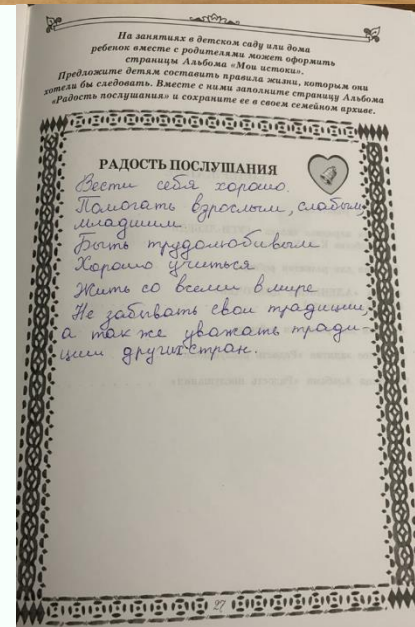 На занятиях в детском саду или дома
ребенок вместе с родителями может оформить
страницы Альбома «Мои истоки».
Предложите детям составить правила жизни, которым они
хотели бы следовать. Вместе с ними заполните страницу Альбома
«Радость послушания» и сохраните ее в своем семейном архиве.
РАДОСТЬ ПОСЛУШАНИЯ
Вести себя хорошо.
Помогать взрослым, слабым,
младшим
Быть трудолюбивым
Хорошо учиться
Жить со всеми в мире
Не забывать свои традиции,
а так же уважать тради-
ции других стран.
27